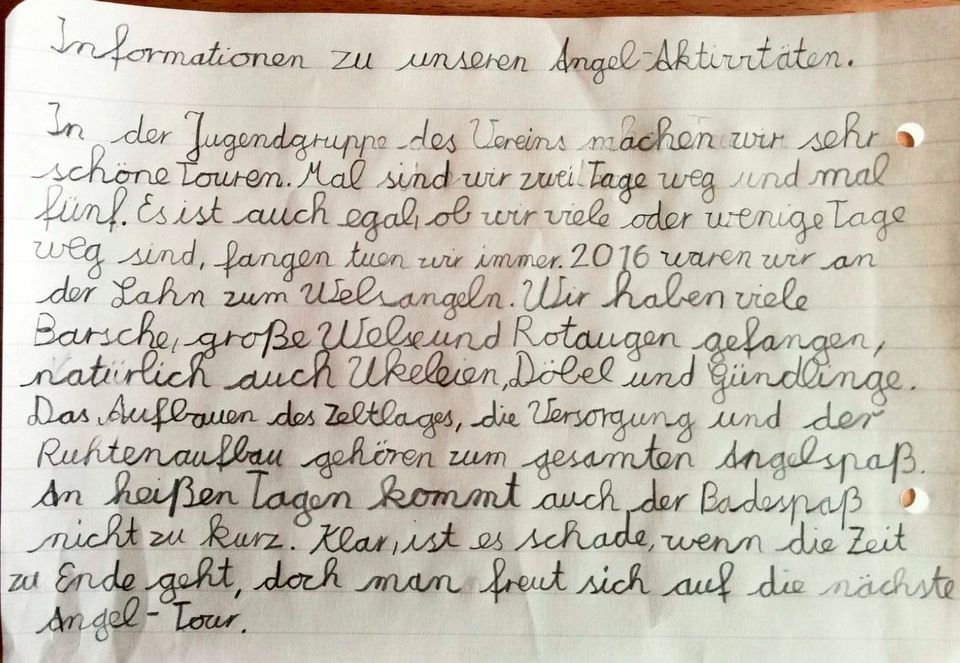 Informationen zu unseren Angel-Aktivitäten.
In der Jugendgruppe des Vereins machen wir sehr
schöne Touren. Mal sind wir zwei Tage weg und mal
fünf. Es ist auch egal, ob wir viele oder wenige Tage
weg sind, fangen tuen wir immer. 2016 waren wir an
der Lahn zum Welsangeln. Wir haben viele
Barsche, große Welse und Rotaugen gefangen,
natürlich auch Ukeleien, Döbel und Gündlinge.
Das Aufbauen des Zeltlages, die Versorgung und der
Ruhtenaufbau gehören zum gesamten Angelspaß.
An heißen Tagen kommt auch der Badespaß
nicht zu kurz. Klar, ist es schade, wenn die Zeit
zu Ende geht, doch man freut sich auf die nächste
Angel-Tour.